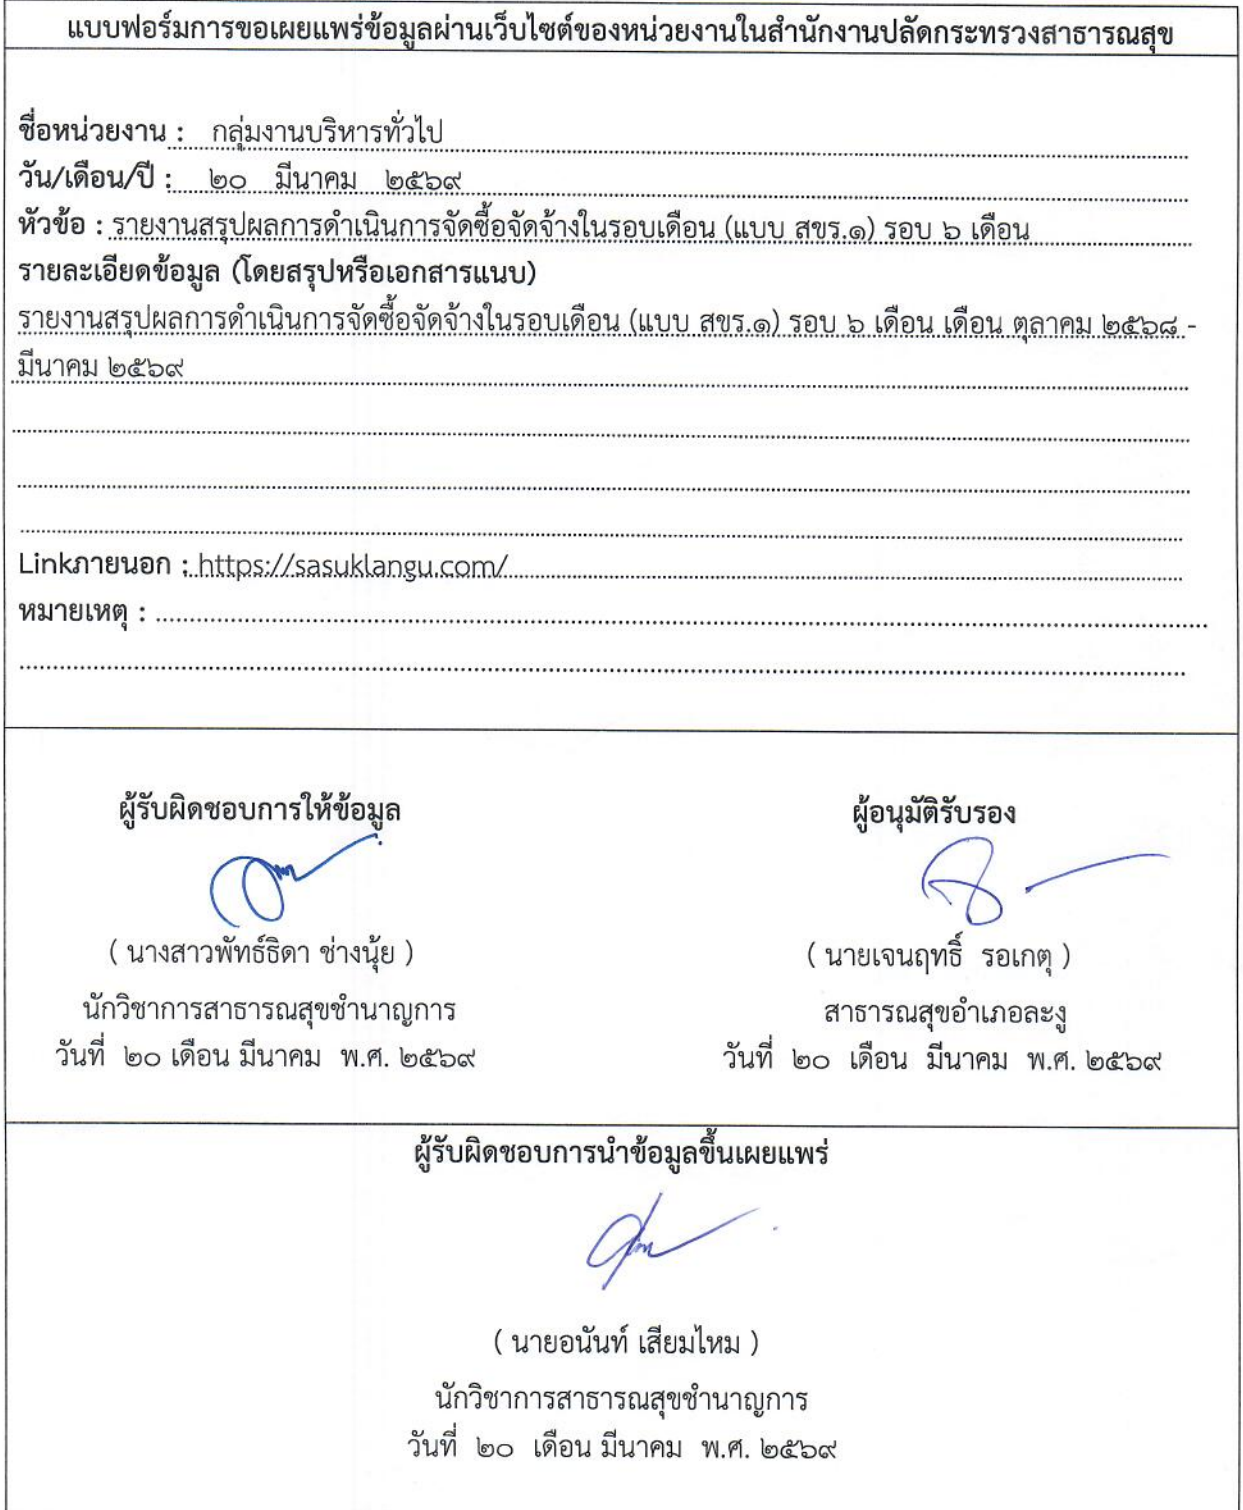 แบบฟอร์มการขอเผยแพร่ข้อมูลผ่านเว็บไซต์ของหน่วยงานในสำนักงานปลัดกระทรวงสาธารณสุข
ชื่อหน่วยงาน : กลุ่มงานบริหารทั่วไป
วัน/เดือน/ปี : ๒๐ มีนาคม ๒๕๖๙
หัวข้อ : รายงานสรุปผลการดำเนินการจัดซื้อจัดจ้างในรอบเดือน (แบบ สขร.๑) รอบ ๖ เดือน
รายละเอียดข้อมูล (โดยสรุปหรือเอกสารแนบ)
รายงานสรุปผลการดำเนินการจัดซื้อจัดจ้างในรอบเดือน (แบบ สขร.๑) รอบ ๖ เดือน เดือน ตุลาคม ๒๕๖๘ -
มีนาคม ๒๕๖๙
Linkภายนอก : https://sasuklangu.com/
หมายเหตุ :
ผู้รับผิดชอบการให้ข้อมูล
( นางสาวพัทธ์ธิดา ช่างนุ้ย )
นักวิชาการสาธารณสุขชำนาญการ
วันที่ ๒๐ เดือน มีนาคม พ.ศ. ๒๕๖๙
ผู้อนุมัติรับรอง
( นายเจนฤทธิ์ รอเกตุ )
สาธารณสุขอำเภอละงู
วันที่ ๒๐ เดือน มีนาคม พ.ศ. ๒๕๖๙
ผู้รับผิดชอบการนำข้อมูลขึ้นเผยแพร่
( นายอนันท์ เสียมไหม )
นักวิชาการสาธารณสุขชำนาญการ
วันที่ ๒๐ เดือน มีนาคม พ.ศ. ๒๕๖๙